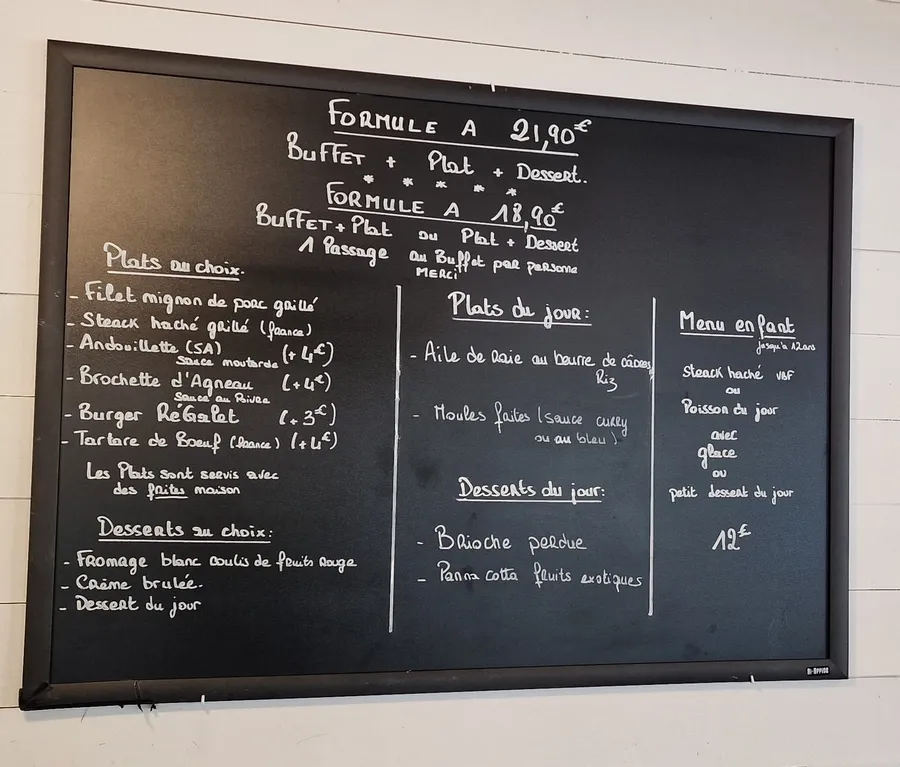 FORMULE A 21,90€
BUFFET + Plat + Dessert.
* * * * *
FORMULE A 18,90€
BUFFET + Plat ou Plat + Dessert
1 Passage au Buffet par personne
MERCI
Plats au choix.
- Filet mignon de porc grillé
- Steack haché grillé (france)
- Andouillette (5A) (+ 4€)
sauce moutarde
- Brochette d'Agneau (+4€)
sauce au Poivre
- Burger RéGalet (+ 3€)
- Tartare de Boeuf (france) (+4€)
Les Plats sont servis avec
des frites maison
Desserts au choix:
- Fromage blanc coulis de fruits rouge
- Crème brulée.
- Dessert du jour
Plats du jour:
- Aile de Raie au beurre de câpres
Riz
- Moules frites (sauce curry
ou au bleu)
Desserts du jour:
- Brioche perdue
- Panna cotta fruits exotiques
Menu enfant
jusqu'à 12 ans
Steack haché VBF
ou
Poisson du jour
avec
glace
ou
petit dessert du jour
12€
Bi-OFFICE